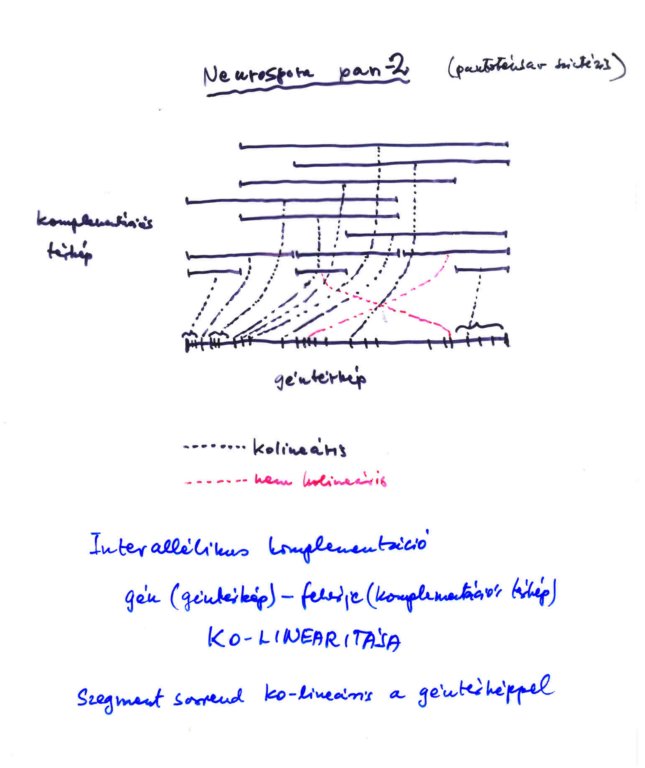 Neurospora pan-2 (pantoténsav szintézis)
komplementációs
térkép
géntérkép
kolineáris
nem kolineáris
Interallélikus komplementáció
gén (géntérkép) – fehérje (komplementációs térkép)
KO-LINEARITÁSA
Szegment sorrend ko-lineáris a géntérképpel